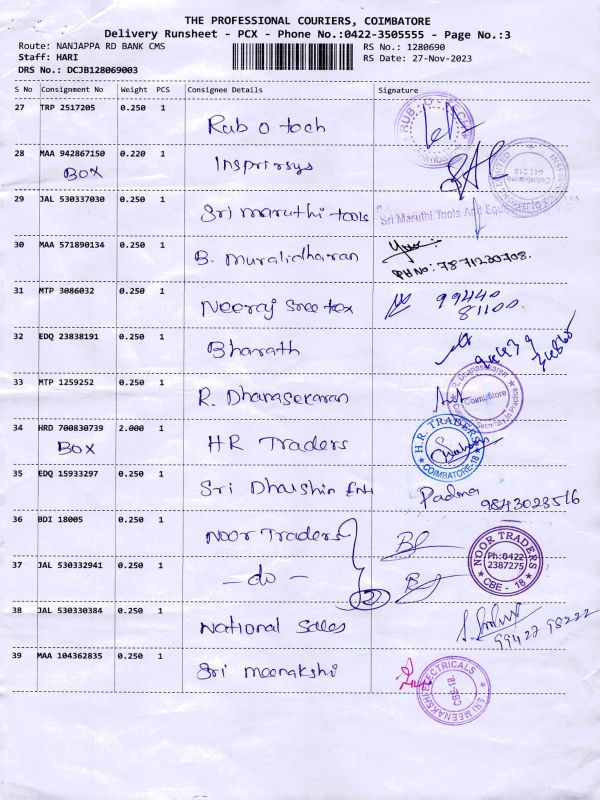 THE PROFESSIONAL COURIERS, COIMBATORE
Delivery Runsheet - PCX - Phone No.:0422-3505555 - Page No.:3
Route: NANJAPPA RD BANK CMS RS No.: 1280690
Staff: HARI RS Date: 27-Nov-2023
DRS No.: DCJB128069003
S No Consignment No Weight PCS Consignee Details Signature
27 TRP 2517205 0.250 1 Rub o tech RUB-O-TECH
28 MAA 942867150 0.220 1 Insprirsys
BOX
29 JAL 530337030 0.250 1 Sri maruthi tools Sri Maruthi Tools And
30 MAA 571890134 0.250 1 B. muralidharan
PH No: 7871230708.
31 MTP 3086032 0.250 1 Neeraj sree tex 99440
81100
32 EDQ 23838191 0.250 1 Bharath
33 MTP 1259252 0.250 1 R. Dhanasekaran Coimbatore
34 HRD 700830739 2.000 1 HR Traders H.R. TRADERS COIMBATORE-18
BOX
35 EDQ 15933297 0.250 1 Sri Dharshin Ent Padma
9843023516
36 BDI 18005 0.250 1 Noor Traders NOOR TRADERS
Ph:0422
2387275
CBE - 18
37 JAL 530332941 0.250 1 - do - 2
38 JAL 530330384 0.250 1 National sales
99422 98222
39 MAA 104362835 0.250 1 Sri meenakshi SRI MEENAKSHI ELECTRICALS
CBE-18.